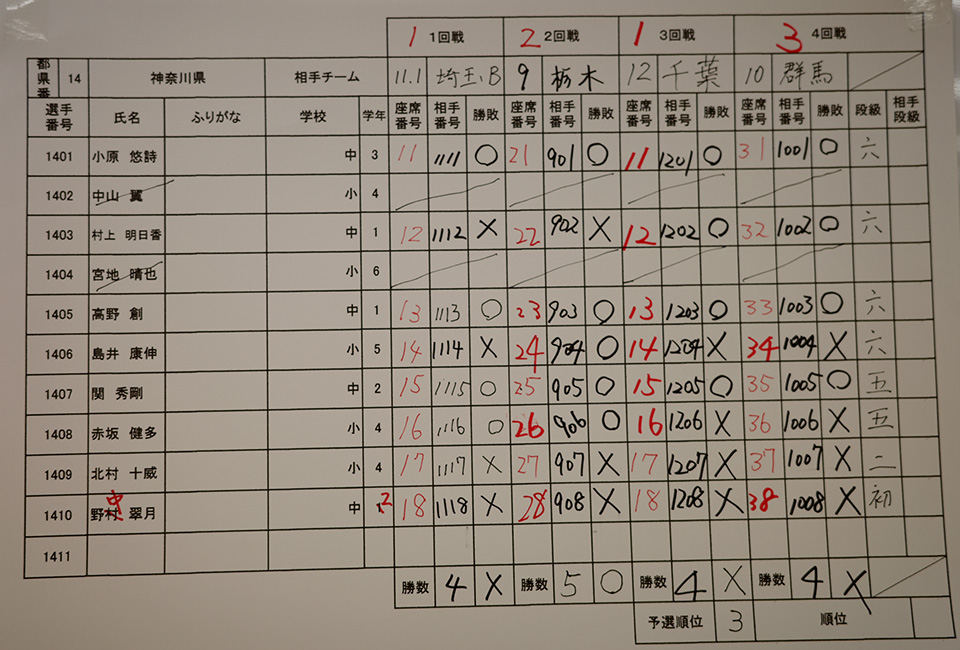 1 1回戦 2 2回戦 1 3回戦 3 4回戦
都県番 14 神奈川県 相手チーム 11.1 埼玉B 9 栃木 12 千葉 10 群馬
選手番号 氏名 ふりがな 学校 学年 座席番号 相手番号 勝敗 座席番号 相手番号 勝敗 座席番号 相手番号 勝敗 座席番号 相手番号 勝敗 段級 相手段級
1401 小原 悠詩 中 3 11 1111 ○ 21 901 ○ 11 1201 ○ 31 1001 ○ 六
1402 中山 翼 小 4
1403 村上 明日香 中 1 12 1112 × 22 902 × 12 1202 ○ 32 1002 ○ 六
1404 宮地 晴也 小 6
1405 高野 創 中 1 13 1113 ○ 23 903 ○ 13 1203 ○ 33 1003 ○ 六
1406 島井 康伸 小 5 14 1114 × 24 904 ○ 14 1204 × 34 1004 × 六
1407 関 秀剛 中 2 15 1115 ○ 25 905 ○ 15 1205 ○ 35 1005 ○ 五
1408 赤坂 健多 小 4 16 1116 ○ 26 906 ○ 16 1206 × 36 1006 × 五
1409 北村 十威 小 4 17 1117 × 27 907 × 17 1207 × 37 1007 × 二
1410 野村 中 翠月 中 2 18 1118 × 28 908 × 18 1208 × 38 1008 × 初
1411
勝数 4 × 勝数 5 ○ 勝数 4 × 勝数 4 ×
予選順位 3 順位